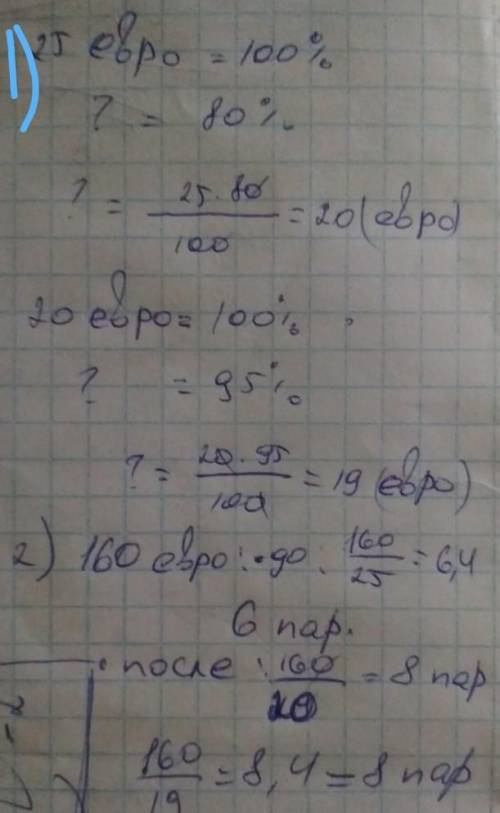 1) 25 евро = 100%
? = 80%.
? = 25·80/100 = 20 (евро)
20 евро = 100%
? = 95%
? = 20·95/100 = 19 (евро)
2) 160 евро: · до: 160/25 = 6,4
6 пар.
· после: 160/20 = 8 пар
160/19 = 8,4 = 8 пар